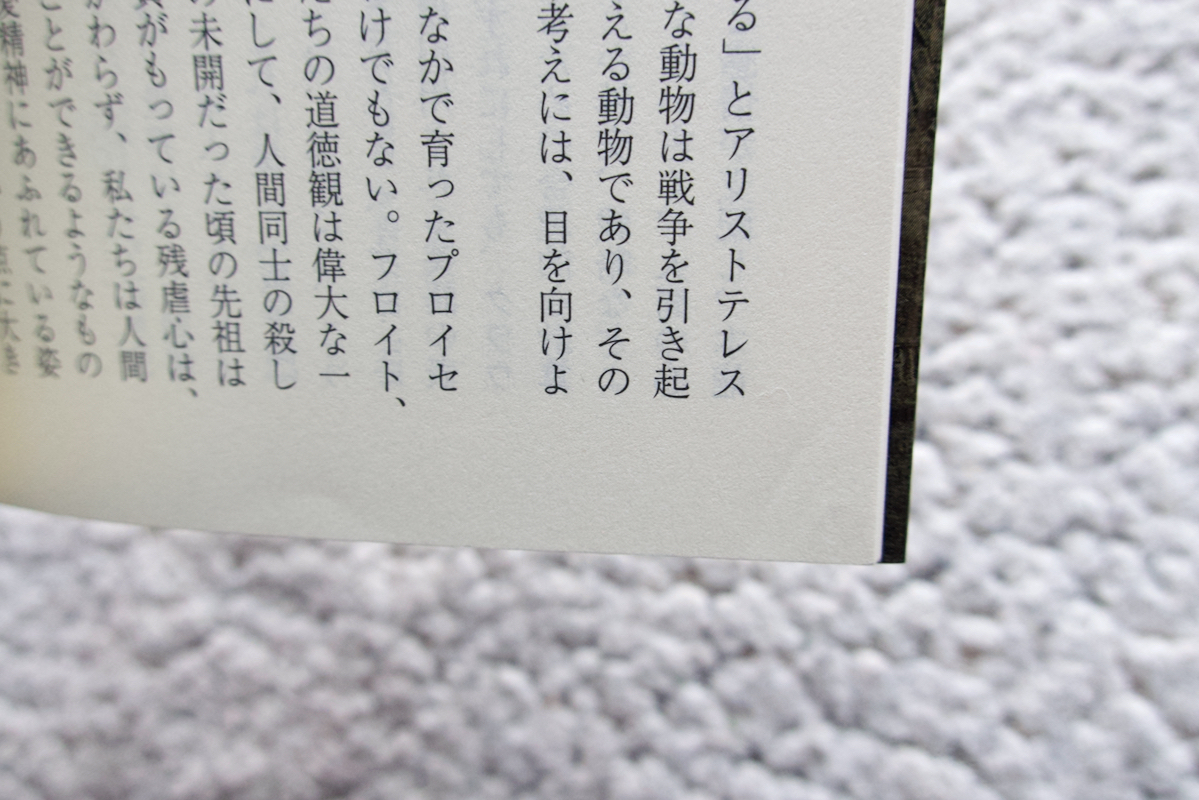 る」とアリストテレス
な動物は戦争を引き起
える動物であり、その
考えには、目を向けよ
なかで育ったプロイセ
けでもない。フロイト、
ちの道徳観は偉大な一
にして、人間同士の殺し
未開だった頃の先祖は
がもっている残虐心は、
かわらず、私たちは人間
ことができるようなもの
精神にあふれている姿